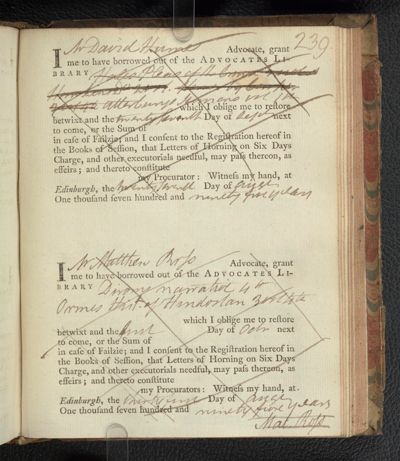 239
I Mr David Hume Advocate, grant
me to have borrowed out of the ADVOCATES LI-
BRARY
Atterburys Sermons which I oblige me to restore
betwixt and the twenty seventh Day of Sepr next
to come, or the Sum of
in case of Failzie; and I consent to the Registration hereof in
the Books of Session, that Letters of Horning on Six Days
Charge, and other executorials needful, may pass thereon, as
effeirs; and thereto constitute
my Procurator: Witness my hand, at
Edinburgh, the twenty seventh Day of augt
One thousand seven hundred and ninety five years
I Mr Matthew Ross Advocate, grant
me to have borrowed out of the ADVOCATES LI-
BRARY
Ormes Hist of Hindostan
which I oblige me to restore
betwixt and the first Day of Octr next
to come, or the Sum of
in case of Failzie; and I consent to the Registration hereof in
the Books of Session, that Letters of Horning on Six Days
Charge, and other executorials needful, may pass thereon, as
effeirs; and thereto constitute
my Procurators: Witness my hand, at.
Edinburgh, the thirty first Day of augt
One thousand seven hundred and ninety five years
Mat. Ross